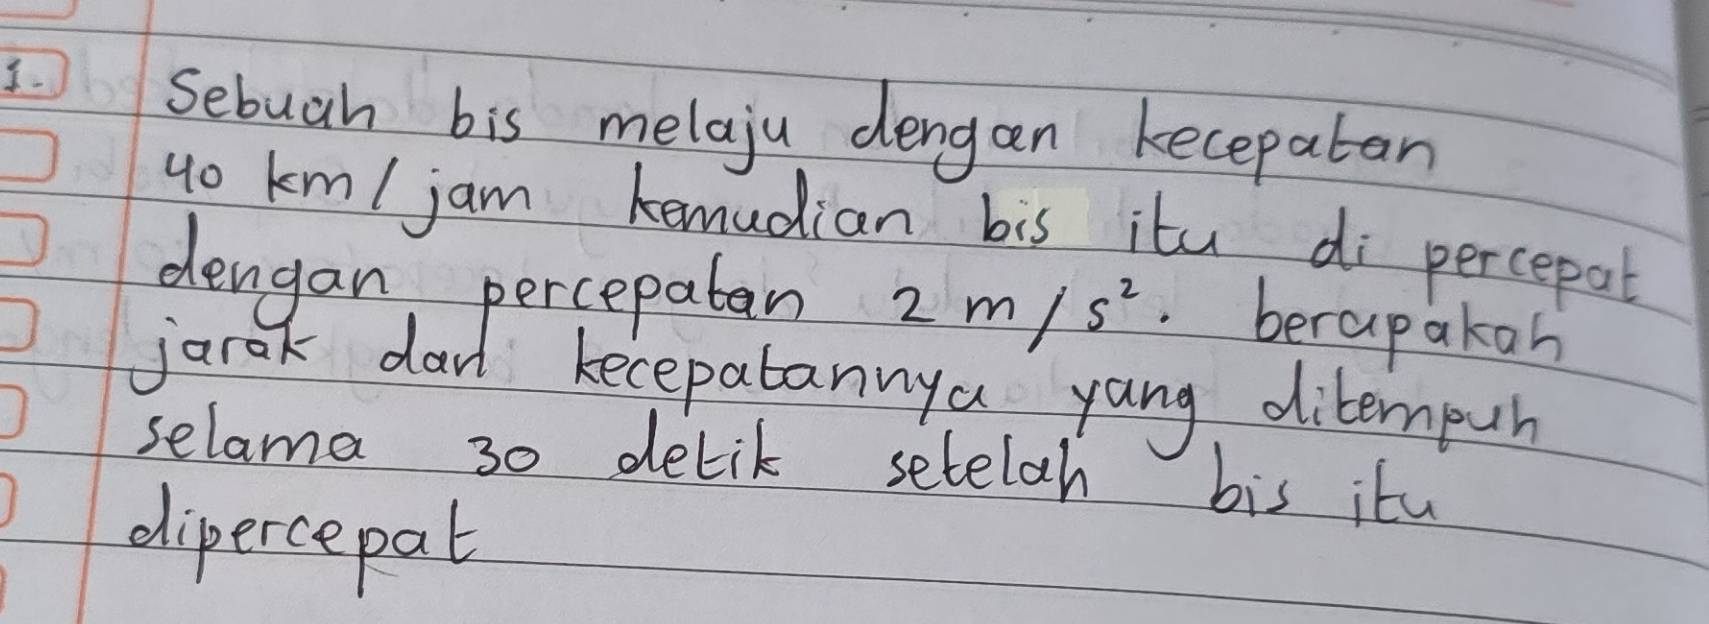 1. Sebuah bis melaju dengan kecepatan
40 km/jam kemudian bis itu di percepat
dengan percepatan 2 m/s². berapakah
jarak dan kecepatannya yang ditempuh
selama 30 detik setelah bis itu
dipercepat